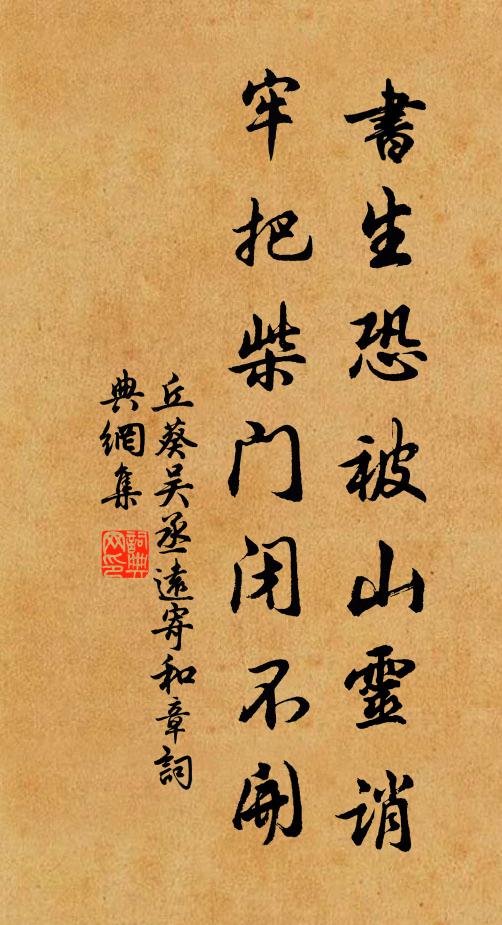 書生恐被山靈誚
牢把柴门闭不開
丘葵吴丞遠寄和章詞
典網集
詞典网印